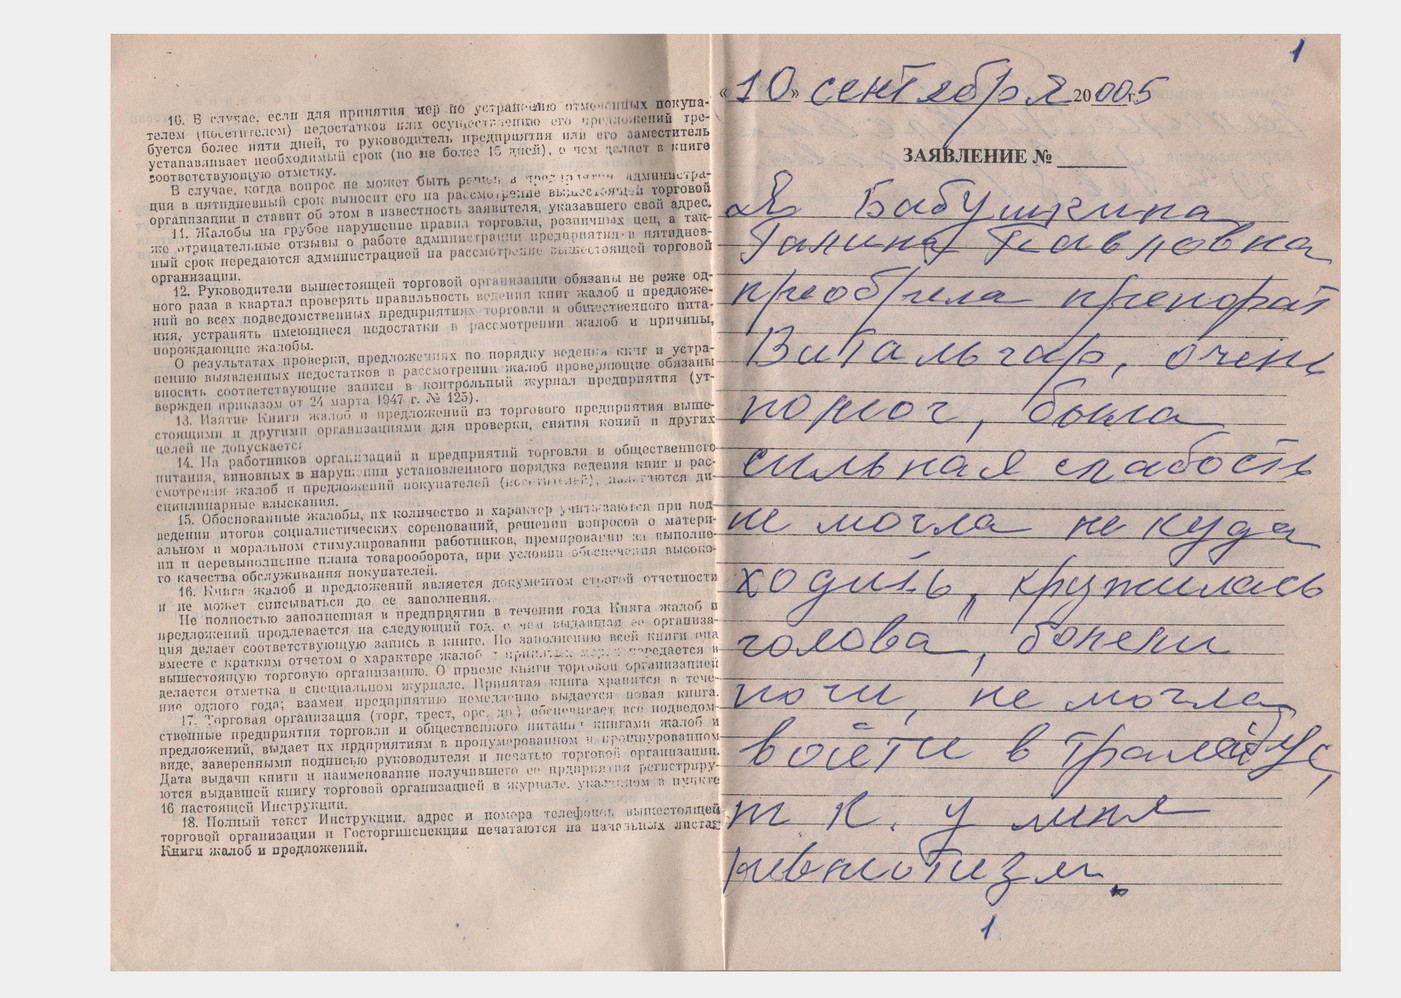 10. В случае, если для принятия мер по устранению отмеченных покупа-
телем (посетителем) недостатков или осуществлению его предложений тре-
буется более пяти дней, то руководитель предприятия или его заместитель
устанавливает необходимый срок (но не более 15 дней), о чем делает в книге
соответствующую отметку.
В случае, когда вопрос не может быть решен в предприятии администра-
ция в пятидневный срок выносит его на рассмотрение вышестоящей торговой
организации и ставит об этом в известность заявителя, указавшего свой адрес.
11. Жалобы на грубое нарушение правил торговли, розничных цен, а так-
же отрицательные отзывы о работе администрации предприятия в пятиднев-
ный срок передаются администрацией на рассмотрение вышестоящей торговой
организации.
12. Руководители вышестоящей торговой организации обязаны не реже од-
ного раза в квартал проверять правильность ведения книг жалоб и предложе-
ний во всех подведомственных предприятиях торговли и общественного пита-
ния, устранять имеющиеся недостатки в рассмотрении жалоб и причины,
порождающие жалобы.
О результатах проверки, предложениях по порядку ведения книг и устра-
нению выявленных недостатков в рассмотрении жалоб проверяющие обязаны
вносить соответствующие записи в контрольный журнал предприятия (ут-
вержден приказом от 24 марта 1947 г. № 125).
13. Изятие Книги жалоб и предложений из торгового предприятия выше-
стоящими и другими организациями для проверки, снятия копий и других
целей не допускается
14. На работников организаций и предприятий торговли и общественного
питания, виновных в нарушении установленного порядка ведения книг и рас-
смотрения жалоб и предложений покупателей (посетителей), налагаются ди-
сциплинарные взыскания.
15. Обоснованные жалобы, их количество и характер учитываются при под-
ведении итогов социалистических соревнований, решении вопросов о матери-
альном и моральном стимулировании работников, премировании за выполне-
ни и перевыполнение плана товарооборота, при условии обеспечения высоко-
го качества обслуживания покупателей.
16. Книга жалоб и предложений является документом строгой отчетности
и не может списываться до ее заполнения.
Не полностью заполненная в предприятии в течении года Книга жалоб и
предложений продлевается на следующий год, о чем выдавшая ее организа-
ция делает соответствующую запись в книге. По заполнению всей книги она
вместе с кратким отчетом о характере жалоб и принятых мерах передается в
вышестоящую торговую организацию. О приеме книги торговой организацией
делается отметка в специальном журнале. Принятая книга хранится в тече-
ние одного года; взамен предприятию немедленно выдается новая книга.
17. Торговая организация (торг, трест, орс, др.) обеспечивает все подведом-
ственные предприятия торговли и общественного питания книгами жалоб и
предложений, выдает их прдприятиям в пронумерованном и прошнурованном
виде, заверенными подписью руководителя и печатью торговой организации.
Дата выдачи книги и наименование получившего ее прдприятия регистриру-
ются выдавшей книгу торговой организацией в журнале, указанном в пункте
16 настоящей Инструкции.
18. Полный текст Инструкции, адрес и номера телефонов вышестоящей
торговой организации и Госторгинспекция печатаются на начальных листах
Книги жалоб и предложений.
1
«10» сентября 20005
ЗАЯВЛЕНИЕ №
Я Бабушкина
Галина Павловна
преобрела препорат
Витальгар, очень
помог, была
сильная слабость
не могла не куда
ходить, кружилась
голова, болели
ноги, не могла
войти в трамвай
т к. у мня
ривмотизм.
1